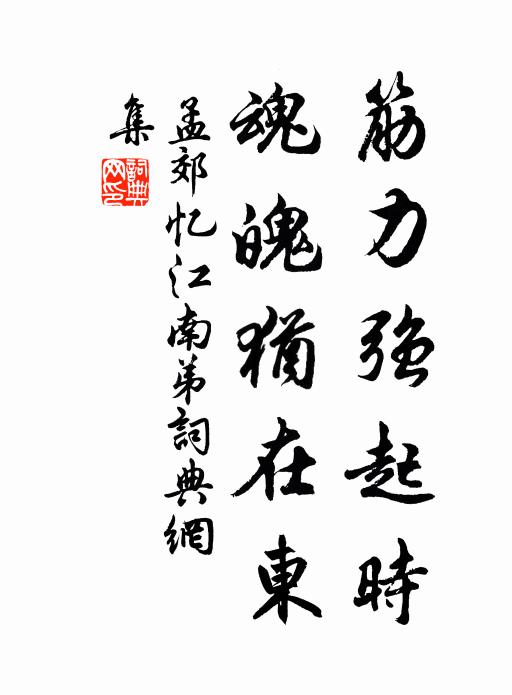 筋力強起時
魂魄猶在東
孟郊忆江南弟詞典網
集
詞典
网印